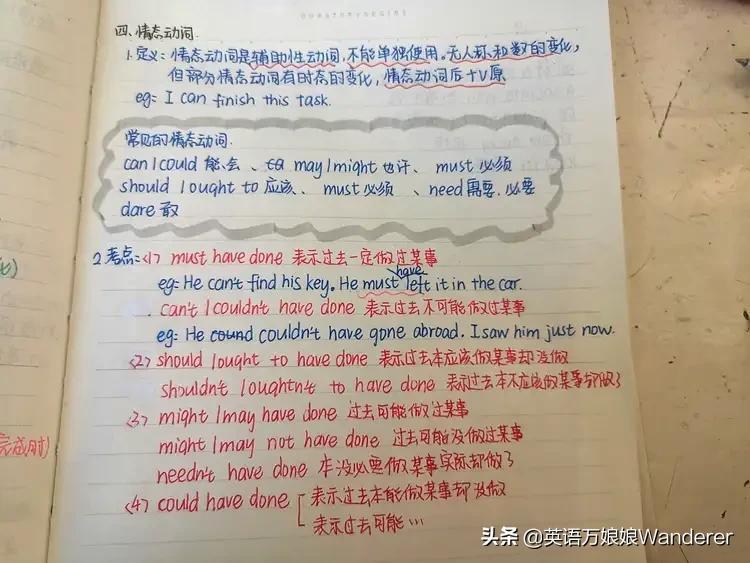 四、情态动词.
1. 定义: 情态动词是辅助性动词, 不能单独使用。无人称和数的变化,
但部分情态动词有时态的变化, 情态动词后+V原
eg: I can finish this task.
常见的情态动词.
can / could 能、会 、 may / might 也许、 must 必须
should / ought to 应该、 must 必须 、need 需要. 必要
dare 敢
2 考点: <1> must have done 表示过去一定做过某事
have
eg: He can't find his key. He must left it in the car.
can't / couldn't have done 表示过去不可能做过某事
eg: He couldn't have gone abroad. I saw him just now.
<2> should / ought to have done 表示过去本应该做某事却没做
shouldn't / oughtn't to have done 表示过去本不应该做某事却做了
<3> might / may have done 过去可能做过某事
might / may not have done 过去可能没做过某事
needn't have done 本没必要做某事实际却做了
<4> could have done 表示过去本能做某事却没做
表示过去可能…
完成时)
头条 @英语万娘娘Wanderer